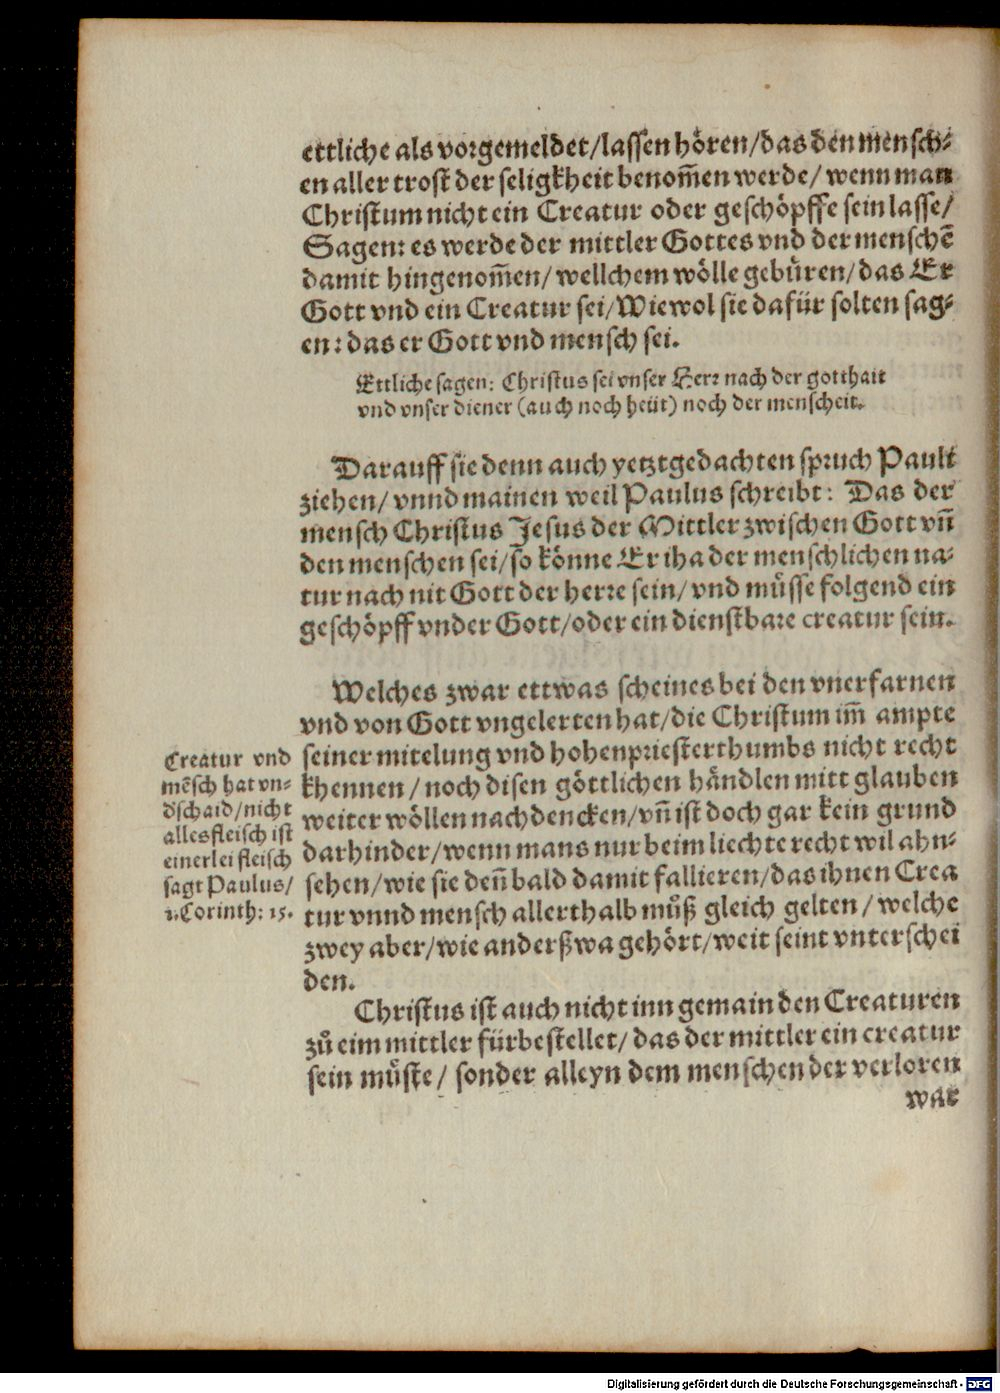 ettliche als vorgemeldet/lassen hören/das den mensch-
en aller trost der seligkheit benom̃en werde/ wenn man
Christum nicht ein Creatur oder geschöpffe sein lasse/
Sagen: es werde der mittler Gottes vnd der menschẽ
damit hingenom̃en/ wellchem wölle gebüren/ das Er
Gott vnd ein Creatur sei/ Wiewol sie dafür solten sag-
en: das er Gott vnd mensch sei.
Ettliche sagen: Christus sei vnser Herr nach der gotthait
vnd vnser diener (auch noch heüt) noch der menscheit.
Darauff sie denn auch yetztgedachten spruch Pauli
ziehen/ vnnd mainen weil Paulus schreibt: Das der
mensch Christus Jesus der Mittler zwischen Gott vñ
den menschen sei/ so könne Er iha der menschlichen na-
tur nach nit Gott der herre sein/ vnd müsse folgend ein
geschöpff vnder Gott/ oder ein dienstbare creatur sein.
Welches zwar ettwas scheines bei den vnerfarnen
vnd von Gott vngelerten hat/ die Christum im̃ ampte
seiner mitelung vnd hohenpriesterthumbs nicht recht
khennen/ noch disen göttlichen händlen mitt glauben
weiter wöllen nachdencken/ vñ ist doch gar kein grund
darhinder/ wenn mans nur beim liechte recht wil ahn-
sehen/ wie sie deñ bald damit fallieren/ das ihnen Crea
tur vnnd mensch allerthalb müß gleich gelten/ welche
zwey aber/ wie anderßwa gehört/ weit seint vnterschei
den.
Creatur vnd
mẽsch hat vn-
d'schaid/ nicht
alles fleisch ist
einerlei fleisch
sagt Paulus/
1. Corinth: 15.
Christus ist auch nicht inn gemain den Creaturen
zů eim mittler fürbestellet/ das der mittler ein creatur
sein müste/ sonder alleyn dem menschen der verloren
war
Digitalisierung gefördert durch die Deutsche Forschungsgemeinschaft - DFG